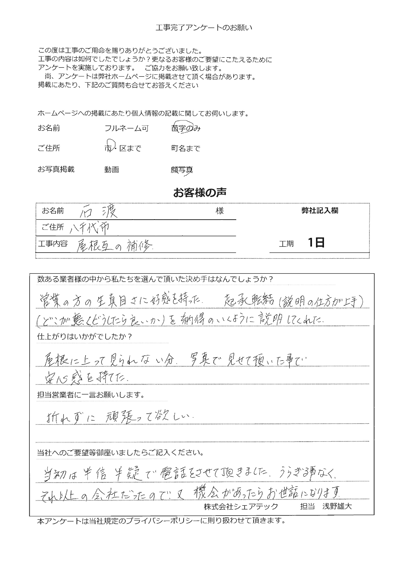 工事完了アンケートのお願い
この度は工事のご用命を賜りありがとうございました。
工事の内容は如何でしたでしょうか?更なるお客様のご要望にこたえるために
アンケートを実施しております。 ご協力をお願い致します。
尚、アンケートは弊社ホームページに掲載させて頂く場合があります。
掲載にあたり、下記のご質問も合せてお答えください
ホームページへの掲載にあたり個人情報の記載に関してお伺いします。
お名前 フルネーム可 苗字のみ
ご住所 市・区まで 町名まで
お写真掲載 動画 顔写真
お客様の声
お名前 石渡 様 弊社記入欄
ご住所 八千代市
工事内容 屋根瓦の補修 工期 1日
数ある業者様の中から私たちを選んで頂いた決め手はなんでしょうか?
営業の方の生真目さに好感を持った. 起承転結(説明の仕方が上手)
(どこが悪くどうしたら良いか)を納得のいくように説明してくれた.
仕上がりはいかがでしたか?
屋根に上って見られない分、写真で見せて頂いた事で
安心感を持てた.
担当営業者に一言お願いします。
折れずに頑張って欲しい.
当社へのご要望等御座いましたらご記入ください。
当初は半信半疑で電話をさせて頂きました. うらぎる事なく.
それ以上の会社だったので.又機会があったらお世話になります
株式会社シェアテック 担当 浅野雄大
本アンケートは当社規定のプライバシーポリシーに則り扱わせて頂きます。